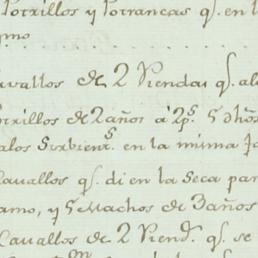 Potrillos y Potrancas q.e en l
smo
avallos de 2 Riendas q.e al
otrillos de 2 años a 2p.s 5 dhõ
alos Sirbien.s en la misma
Cavallos q.e di en la Seca par
amo, y 5 Machos de 3 años
Cavallos de 2 Riend.s q.e se